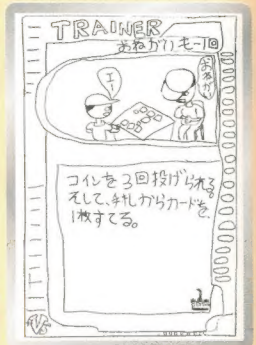 TRAINER
おねがいもー1回
エー
おねがい
コインを3回投げられる。
そして、手札からカードを、
1枚すてる。
VS